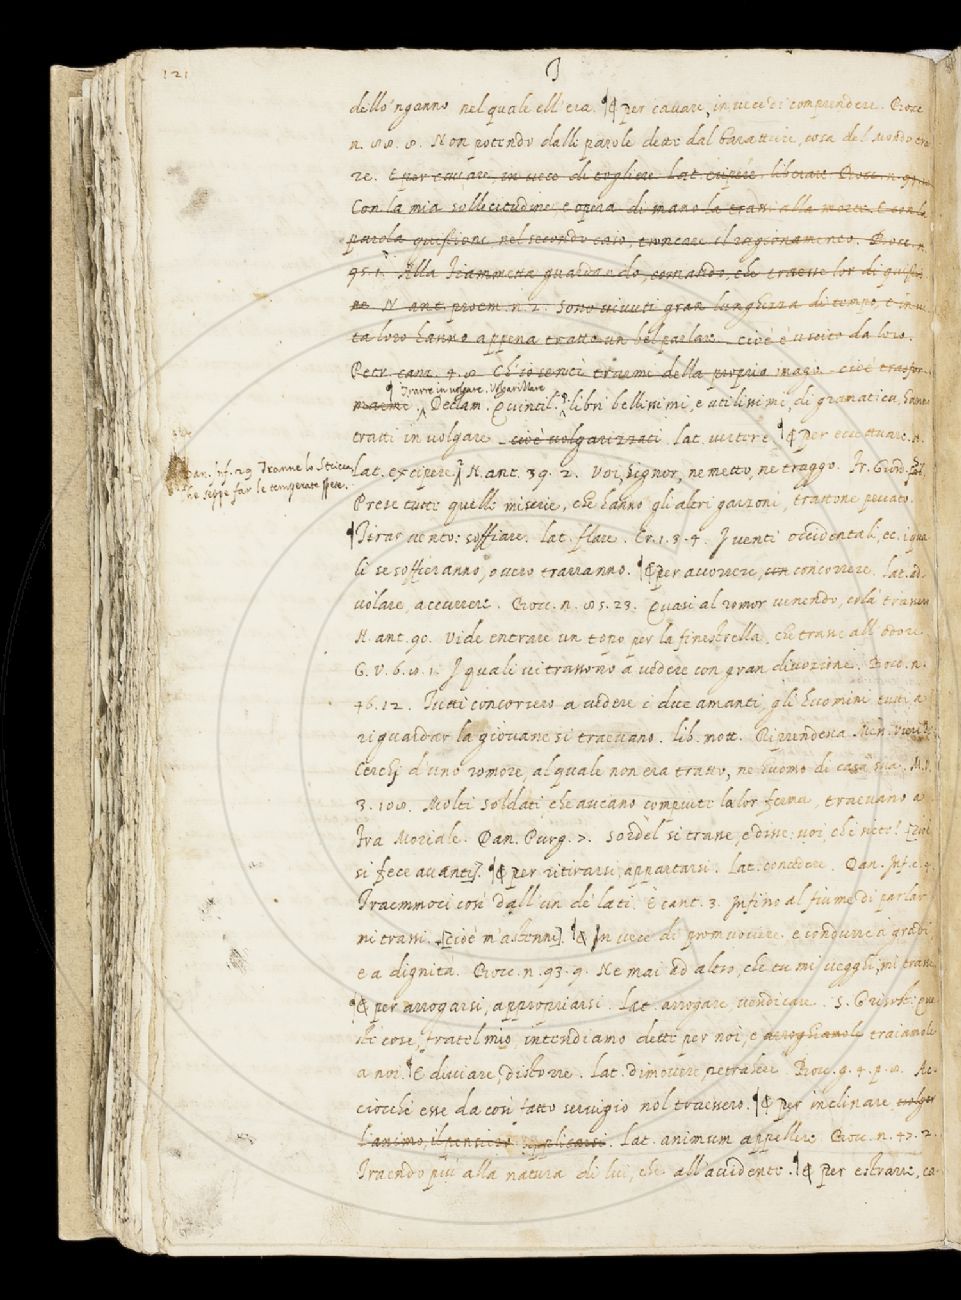 121
T
dello 'nganno nel quale ell'era. ¶ E per cavare, in vece di comprendere. Bocc.
n. 88. 8. Non potendo dalle parole dette dal barattiere, cosa del Mondo tra
re. E per cavare, in vece di togliere. lat. eripere. liberare. Bocc. n. 97.
Con la mia sollecitudine, e opera di mano la trassi alla morte. E con la
parola quistione, nel secondo caso, troncare il ragionamento. Bocc. n.
95. 1. Alla Fiammetta guardando, comandò, che traesse lor di quistio
ne. N. ant. proem. n. 2. Sono vivuti gran lunghezza di tempo, e in vi
ta loro hanno appena tratto un bel parlare. cioè è uscito da loro.
Petr. canz. 4. 8. Ch'io sentì trarmi della propria imago. cioè trasfor
marme.
Trarre in volgare. Volgarizzare
Declam. Quintil. libri bellissimi, e utilissimi, di gramatica, hanno
tratti in volgare. cioè volgarizzati. lat. vertere. ¶ E per eccettuare.
lat. excipere. N. ant. 39. 2. Voi, signor, ne metto, ne traggo. Fr. Giord.
Dan. Inf. 29 Tranne lo Stricca
Che seppe far le temperate spese.
Prese tutte quelle miserie, che hanno gli altri garzoni, trattone peccato.
¶ Tirar vento: soffiare. lat. flare. Cr. 1. 3. 4. I venti occidentali, ec. igua
li se soffieranno, o vero trarranno. ¶ E per accorrere, concorrere. lat. ad
volare, accurrere. Bocc. n. 85. 23. Quasi al romor venendo, colà trassero
N. ant. 90. Vide entrare un topo per la finestrella, che trasse all'odore
G. V. 6. 8. 1. I quali vi trassono a vedere con gran divozione. Bocc. n.
46. 12. Tutti concorsero a vedere i due amanti, gli huomini tutti a
riguardar la giovane si traevano. lib. mott. Riprendeva Mess. Vieri de'
Cerchj d'uno romore, al quale non era tratto, ne huomo di casa sua. M. V.
3. 108. Molti soldati che aveano compiute la lor ferma, traevano a
Fra Moriale. Dan. Purg. 7. Sordel si trasse, e disse: voi, chi siete? [cioè
si fece avanti]. ¶ E per ritirarsi, appartarsi. lat. concedere. Dan. Inf. c. 4.
Traemmoci così dall'un de' lati. E cant. 3. Infino al fiume di parlar
mi trassi. [cioè m'astenni]. ¶ E In vece di promuovere, e condurre a gradi
e a dignità. Bocc. n. 93. 9. Ne mai ad altro, che tu mi vegghi, mi trasse
¶ E per arrogarsi, appropriarsi. lat. arrogare, vendicare. S. Grisost. que
ste cose, fratel mio, intendiamo dette per noi, e arroghiamole traiamole
a noi. ¶ E deviare, distorre. lat. dimovere, retrahere. Bocc. g. 4. p. 8. Ac-
ciocchè esse da così fatto servigio nol traessero. ¶ E per inclinare, volger
l'animo, il pensiero applicarsi. lat. animum appellere. Bocc. n. 47. 2.
Traendo più alla natura di lui, che all'accidente. ¶ E per estrarre, ca-